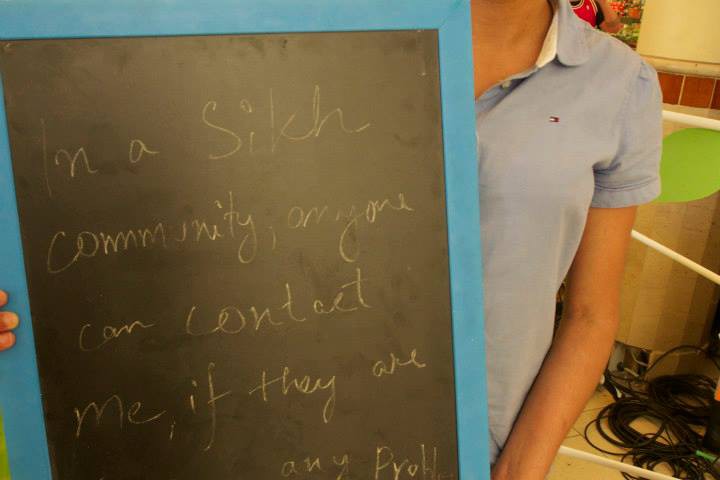 In a Sikh
community, anyone
can contact
me, if they are
any Probl